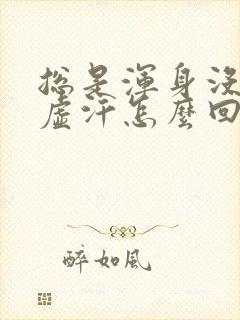 總是渾身沒
虛汗怎麼回
醉如風